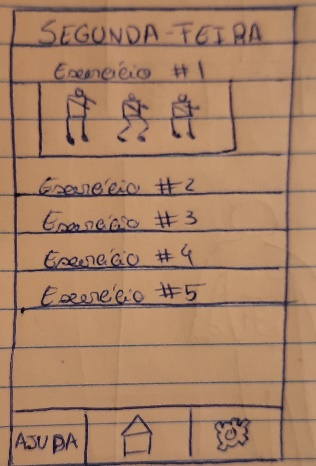 SEGUNDA-FEIRA
Exercício #1
Exercício #2
Exercício #3
Exercício #4
Exercício #5
AJUDA